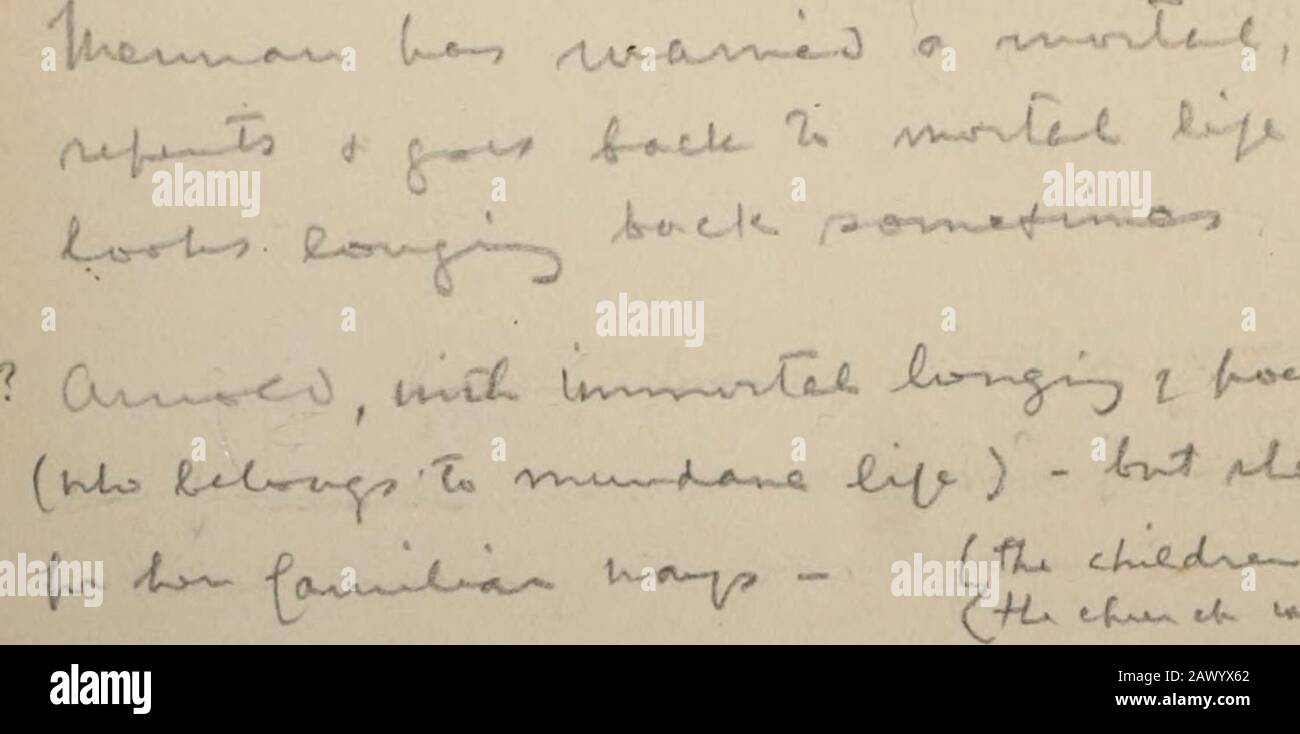 Merman has married a mortal,
repents & goes back to mortal life
looks longing back sometimes
? Arnold, with immortal longing &
(who belongs to mundane life) - but she
for her familiar ways - (the children
(the church
alamy
Image ID: 2AWYX62
www.alamy.com